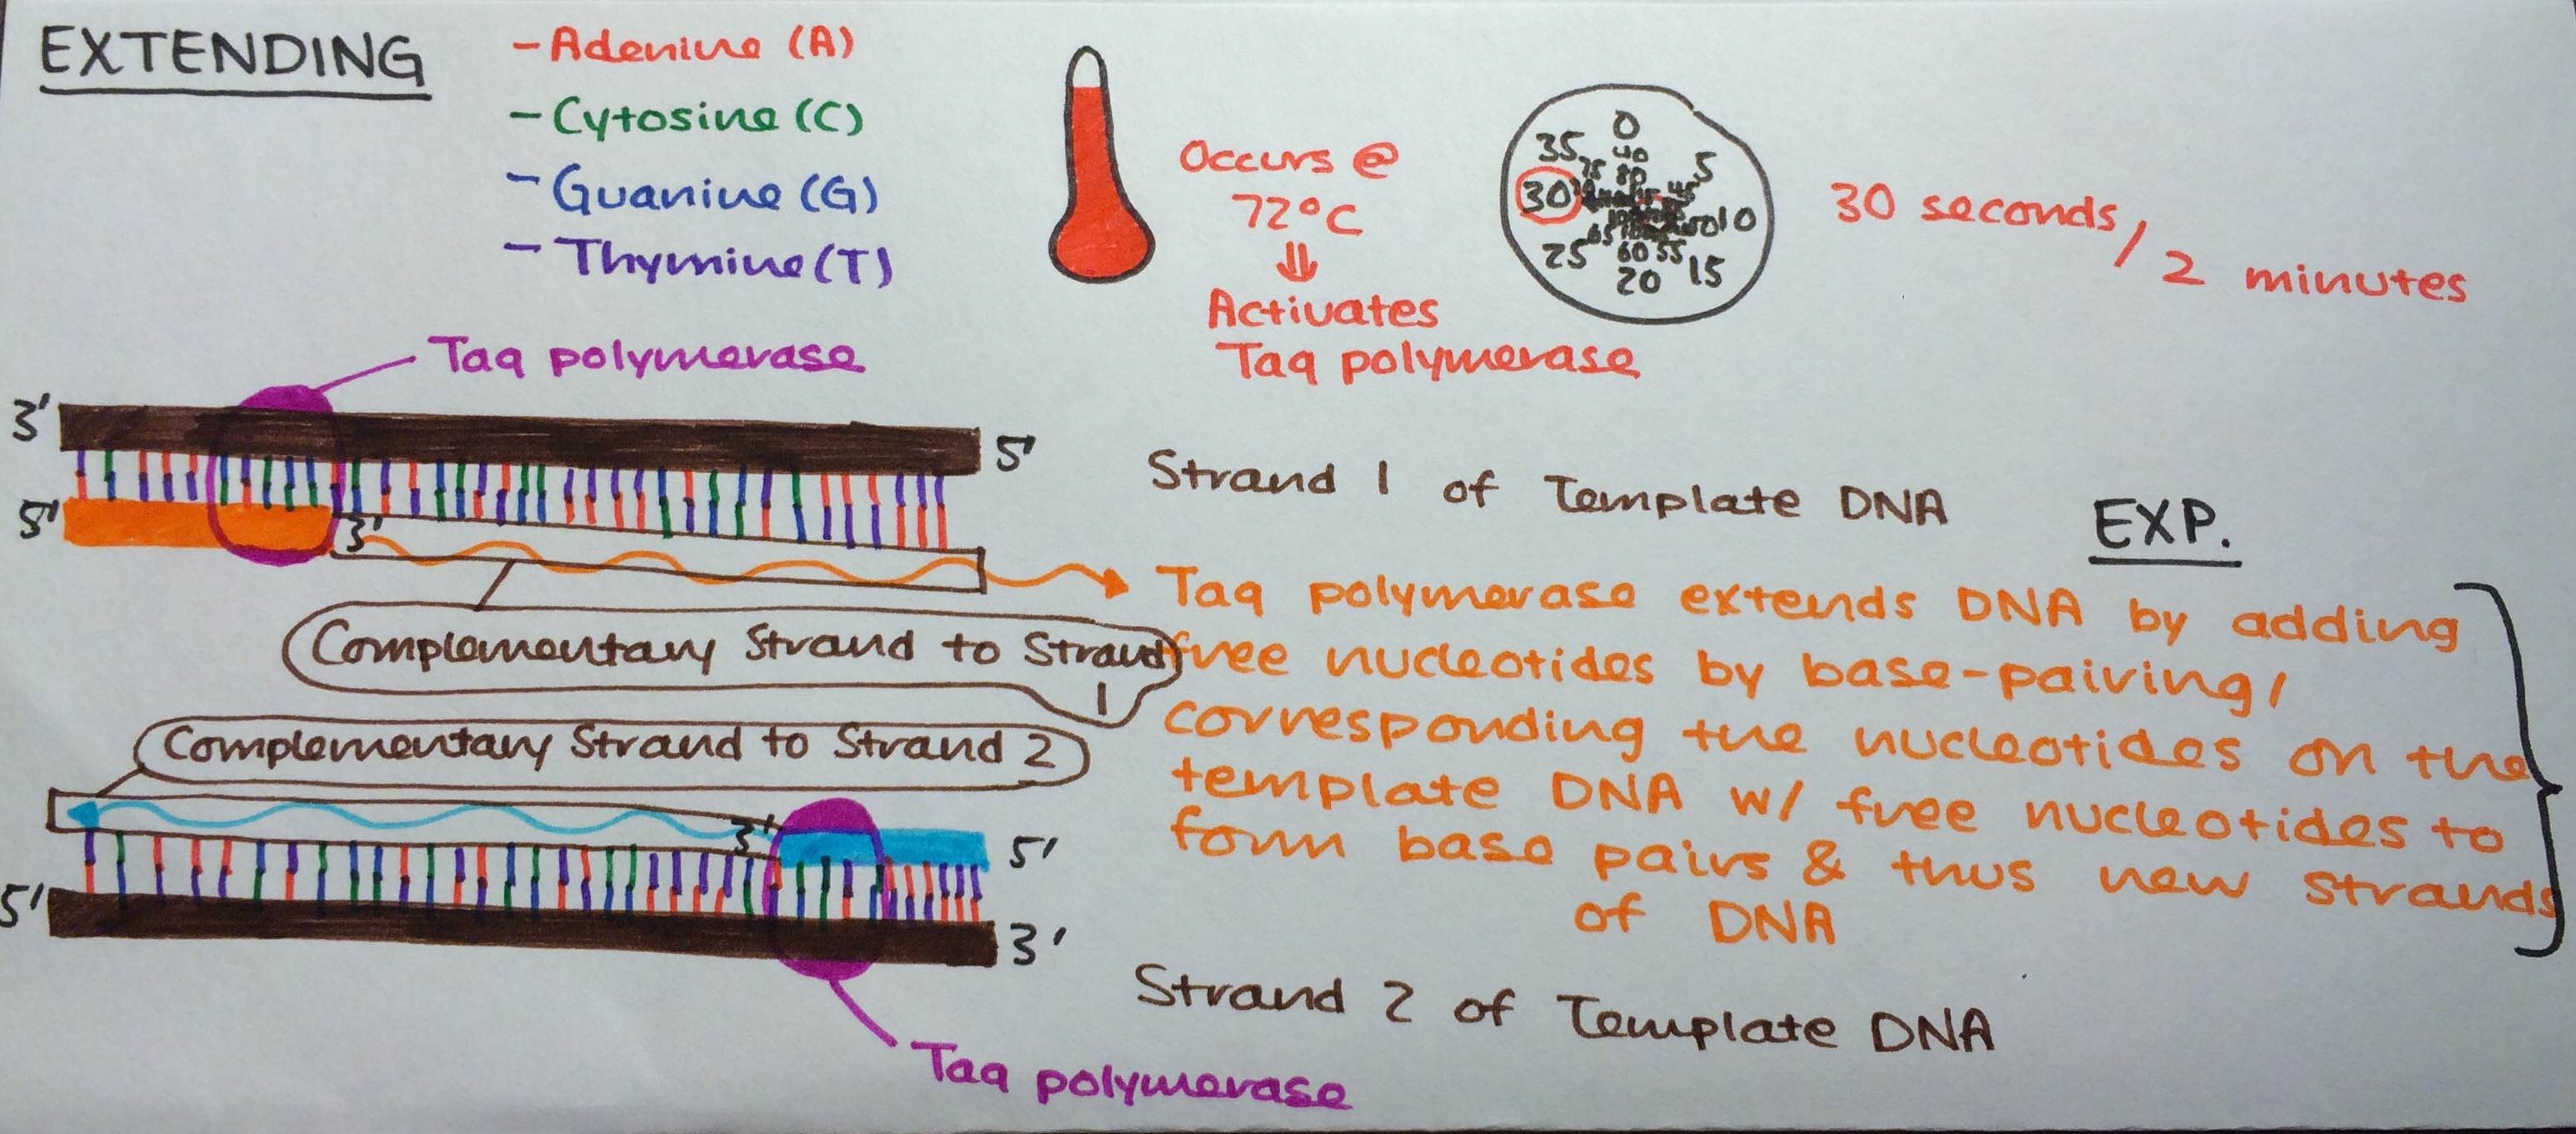 EXTENDING
- Adenine (A)
- Cytosine (C)
- Guanine (G)
- Thymine (T)
Occurs @
72°C
⇓
Activates
Taq polymerase
0
5
10
15
20
25
30
35
40
45
55
60
65
75
80
30 seconds/
2 minutes
Taq polymerase
3'
5'
5'
3'
Strand 1 of Template DNA
EXP.
Complementary Strand to Strand
1
Taq polymerase extends DNA by adding
free nucleotides by base-pairing/
corresponding the nucleotides on the
template DNA w/ free nucleotides to
form base pairs & thus new strands
of DNA
Complementary Strand to Strand 2
3'
5'
5'
3'
Strand 2 of Template DNA
Taq polymerase